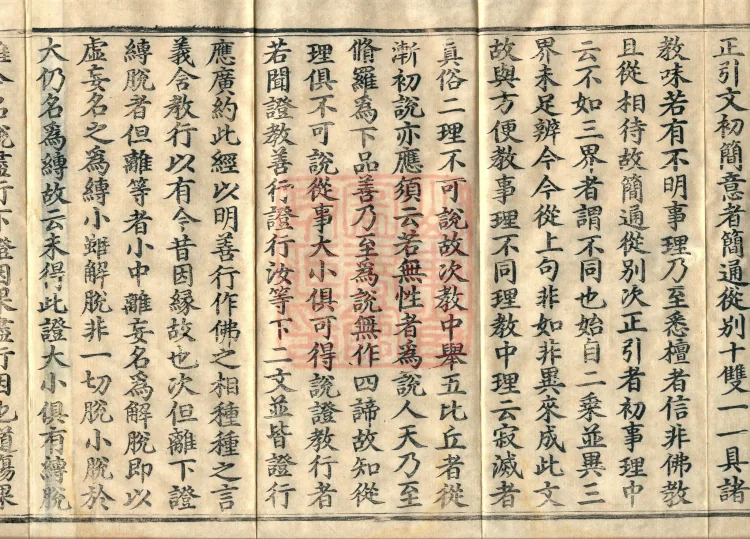 正引文初簡意者簡通從別十雙一一具諸
教味若有不明事理乃至悉檀者信非佛教
且從相待故簡通從別次正引者初事理中
云不如三界者謂不同也始自二乘並異三
界未足辨今今從上句非如非異來成此文
故與方便教事理不同理教中理云寂滅者
真俗二理不可說故次教中舉五比丘者從
漸初說亦應須云若無性者為說人天乃至
脩羅為下品善乃至為說無作四諦故知從
理俱不可說從事大小俱可得說證教行者
若聞證教善行證行汝等下二文並皆證行
應廣約此經以明善行作佛之相種種之言
義含教行以有今昔因緣故也次但離下證
縛脫者但離等者小中離妄名為解脫即以
虛妄名之為縛小雖解脫非一切脫小脫於
大仍名為縛故云未得此證大小俱有縛脫
名脫盡行下證因果盡行因也道場果